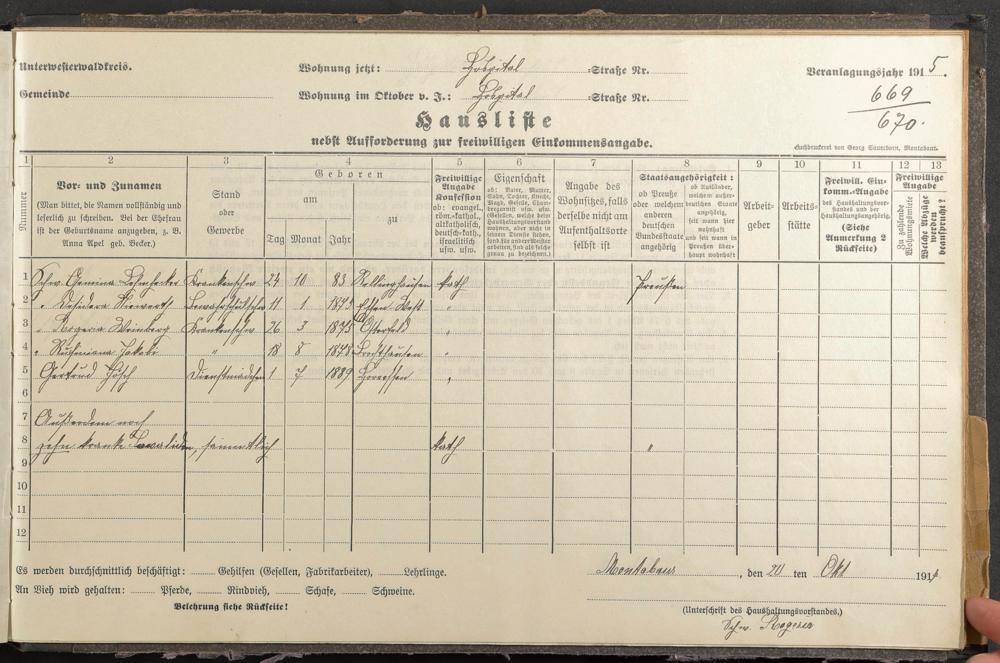 Unterwesterwaldkreis.
Wohnung jetzt: Hospital =Straße Nr.
Veranlagungsjahr 1915.
Gemeinde
Wohnung im Oktober v. J.: Hospital =Straße Nr.
669
670.
Hausliste
nebst Aufforderung zur freiwilligen Einkommensangabe.
Buchdruckerei von Georg Sauerborn, Montabaur.
1 2 3 4 5 6 7 8 9 10 11 12 13
Nummer
Vor- und Zunamen
(Man bittet, die Namen vollständig und
leserlich zu schreiben. Bei der Ehefrau
ist der Geburtsname anzugeben, z. B.
Anna Apel geb. Becker.)
Stand
oder
Gewerbe
Geboren
am
zu
Tag Monat Jahr
Freiwillige
Angabe
Konfession
ob: evangel.,
röm.-kathol.,
altkatholisch,
deutsch-kath.,
israelitisch
usw. usw.
Eigenschaft
ob: Vater, Mutter,
Sohn, Tochter, Knecht,
Magd, Geselle,
Angabe des
Wohnsitzes, falls
derselbe nicht am
Aufenthaltsorte
selbst ist
Staatsangehörigkeit:
ob Preuße
oder welchem
anderen
deutschen
Bundesstaate
angehörig
ob Ausländer,
welchem außer-
deutschen Staate
angehörig,
seit wann hier
wohnhaft
und seit wann in
Preußen über-
haupt wohnhaft
Arbeit-
geber
Arbeits-
stätte
Freiwill. Ein-
komm.-Angabe
des Haushaltungsvor-
standes und der
Haushaltungsangehörig.
(Siehe
Anmerkung 2
Rückseite)
Freiwillige
Angabe
Zu zahlende
Wohnungsmiete
Welche Abzüge
werden
beansprucht?
1 Schw. Gemma Krankenschw 24 10 83 kath Preußen
2 " Desidera 11 1 1873 Essen-West "
3 " Rogeria Weinberg Krankenschw 26 3 1875 Osterfeld "
4 " Rufiniana Jakobi " 18 8 1878 "
5 Gertrud Hösch Dienstmädchen 1 7 1889 Horressen "
6
7 Außerdem noch
8 zehn kranke Invaliden, sämmtlich kath "
9
10
11
12
Es werden durchschnittlich beschäftigt: Gehilfen (Gesellen, Fabrikarbeiter), Lehrlinge.
Montabaur, den 20 ten Okt 1914
An Vieh wird gehalten: Pferde, Rindvieh, Schafe, Schweine.
Belehrung siehe Rückseite!
(Unterschrift des Haushaltungsvorstandes.)
Schw. Rogeria